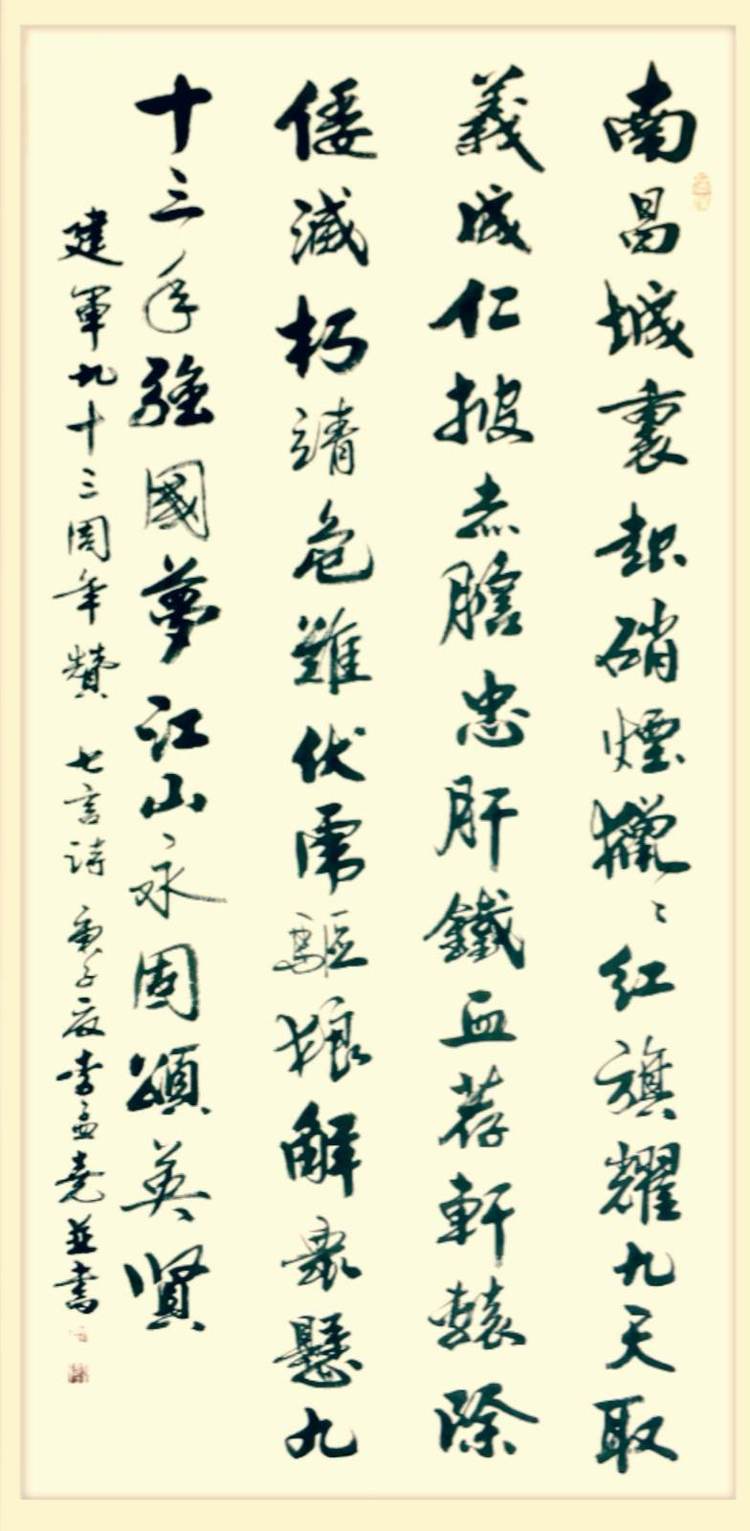 南昌城裏起硝煙獵〻紅旗耀九天取
義成仁披赤膽忠肝鐵血荐軒轅除
倭滅朽靖危難伏虎驅狼解衆懸九
十三年強國夢江山永固頌英賢
建軍九十三周年贊 七言詩 庚子夏李孟堯並書